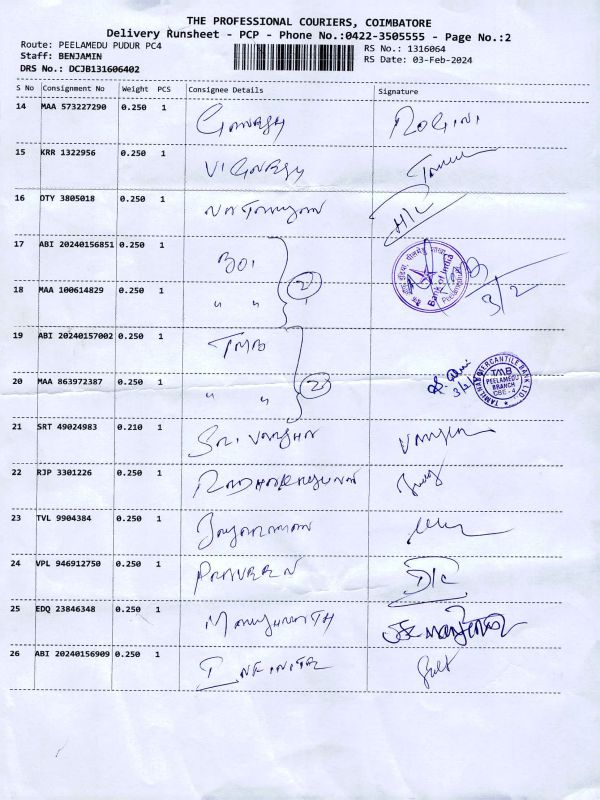 THE PROFESSIONAL COURIERS, COIMBATORE
Delivery Runsheet - PCP - Phone No.:0422-3505555 - Page No.:2
Route: PEELAMEDU PUDUR PC4
RS No.: 1316064
Staff: BENJAMIN
RS Date: 03-Feb-2024
DRS No.: DCJB131606402
S No Consignment No Weight PCS Consignee Details Signature
14 MAA 573227290 0.250 1 Ganesh ROGINI
15 KRR 1322956 0.250 1 VIGNESH
16 OTY 3805018 0.250 1 H/L
17 ABI 20240156851 0.250 1 BOI
2
Bank of India
3/2
18 MAA 100614829 0.250 1 " "
19 ABI 20240157002 0.250 1 TMB
2
3/2
TAMILNAD MERCANTILE BANK LTD.
TMB
PEELAMEDU
BRANCH
CBE-4
20 MAA 863972387 0.250 1 " "
21 SRT 49024983 0.210 1 SRI VARSHN
22 RJP 3301226 0.250 1
23 TVL 9904384 0.250 1 Jayaraman
24 VPL 946912750 0.250 1 PRAVEEN D/C
25 EDQ 23846348 0.250 1 MANJUNATH
26 ABI 20240156909 0.250 1 INFINITE